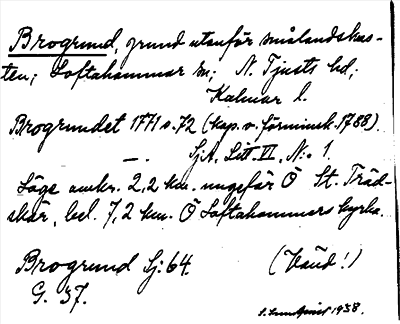 Brogrund, grund utanför smålandskus-
ten; Loftahammar sn; N. Tjusts hd;
Kalmar l.
Brogrundet 1771 s. 72 (kap. v. förminsk. 1788).
—„— SjA. Litt VI, No 1.
Läge omkr. 2,2 km. ungefär Ö St. Träd-
skär, bel. 7,2 km. Ö Loftahammars kyrka.
Brogrund Sj: 64. (Väud!)
G. 37.
S. Sundqvist 1938.